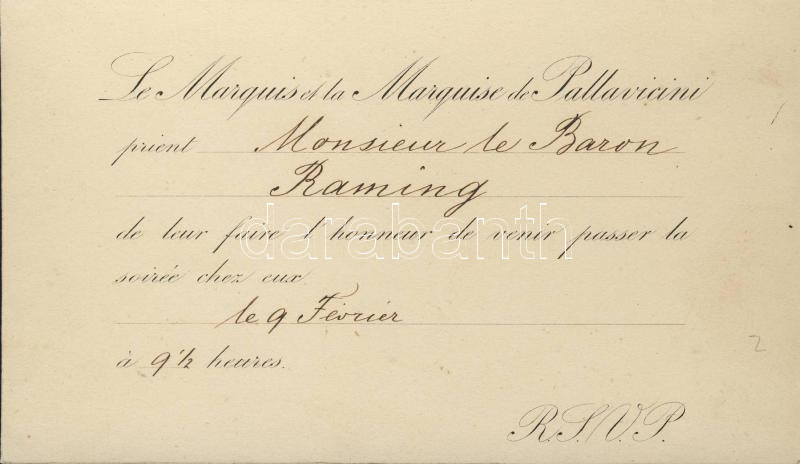 Le Marquis et la Marquise de Pallavicini
prient Monsieur le Baron
Raming
de leur faire l'honneur de venir passer la
soirée chez eux
le 9 Février
à 9 1/2 heures.
R.S.V.P.
darabanth
2